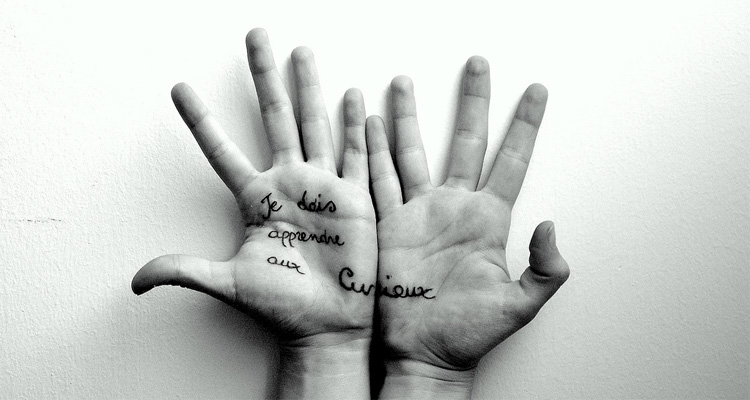 Je dois
apprendre
aux
Curieux